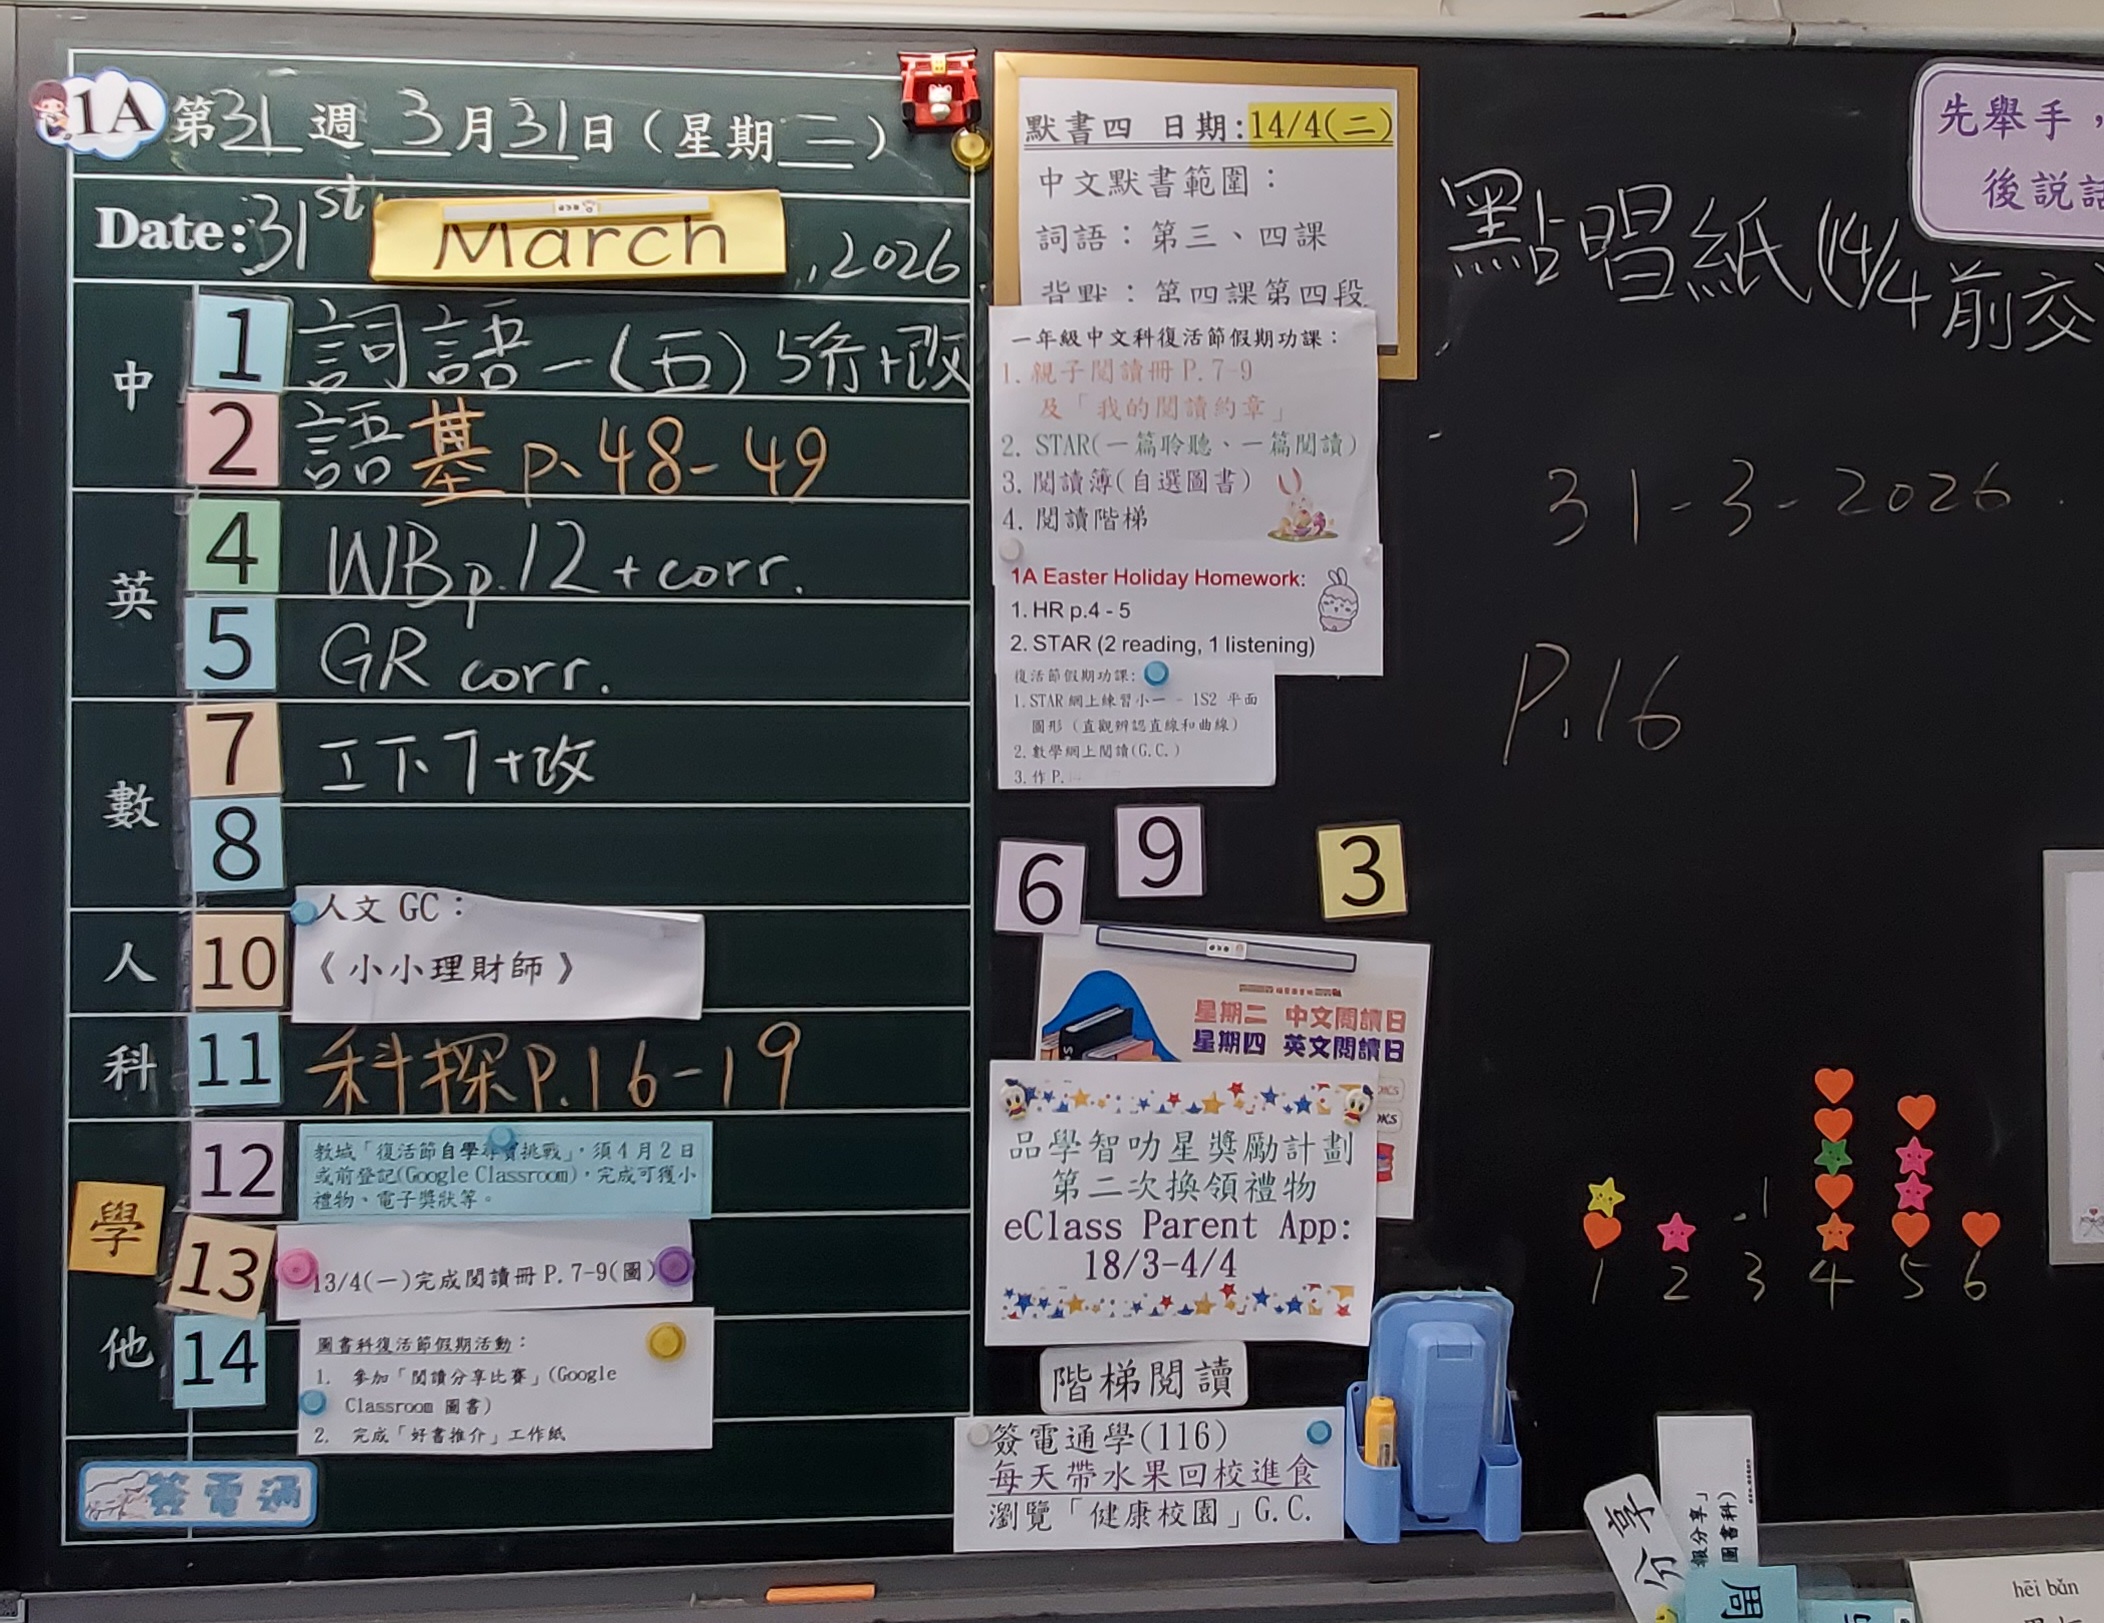 1A 第31週 3月31日(星期二)
Date: 31st March, 2026
中
1 詞語一(五) 5行+改
2 語基 p、48-49
英
4 WB p.12 + corr.
5 GR corr.
數
7 工下7+改
8
人
10 人文 GC:
《小小理財師》
科
11 科探P.16-19
學
他
12 教城「復活節自學尋寶挑戰」,須4月2日
或前登記(Google Classroom),完成可獲小
禮物、電子獎狀等。
13 13/4(一)完成閱讀冊 P.7-9(圖)
14 圖書科復活節假期活動:
1. 參加「閱讀分享比賽」(Google
Classroom 圖書)
2. 完成「好書推介」工作紙
簽電通
默書四 日期:14/4(二)
中文默書範圍:
詞語:第三、四課
背默:第四課第四段
一年級中文科復活節假期功課:
1. 親子閱讀冊 P.7-9
及「我的閱讀約章」
2. STAR(一篇聆聽、一篇閱讀)
3. 閱讀簿(自選圖書)
4. 閱讀階梯
1A Easter Holiday Homework:
1. HR p.4 - 5
2. STAR (2 reading, 1 listening)
復活節假期功課:
1. STAR 網上練習小一 - 1S2 平面
圖形(直觀辨認直線和曲線)
2. 數學網上閱讀(G.C.)
3. 作 P.
6 9 3
星期二 中文閱讀日
星期四 英文閱讀日
品學智叻星獎勵計劃
第二次換領禮物
eClass Parent App:
18/3-4/4
階梯閱讀
簽電通學(116)
每天帶水果回校進食
瀏覽「健康校園」G.C.
先舉手,
後説話
點唱紙(14/4前交)
31-3-2026
P.16
1 2 3 4 5 6
分享
報分享」
圖書科)
周
hēi bǎn